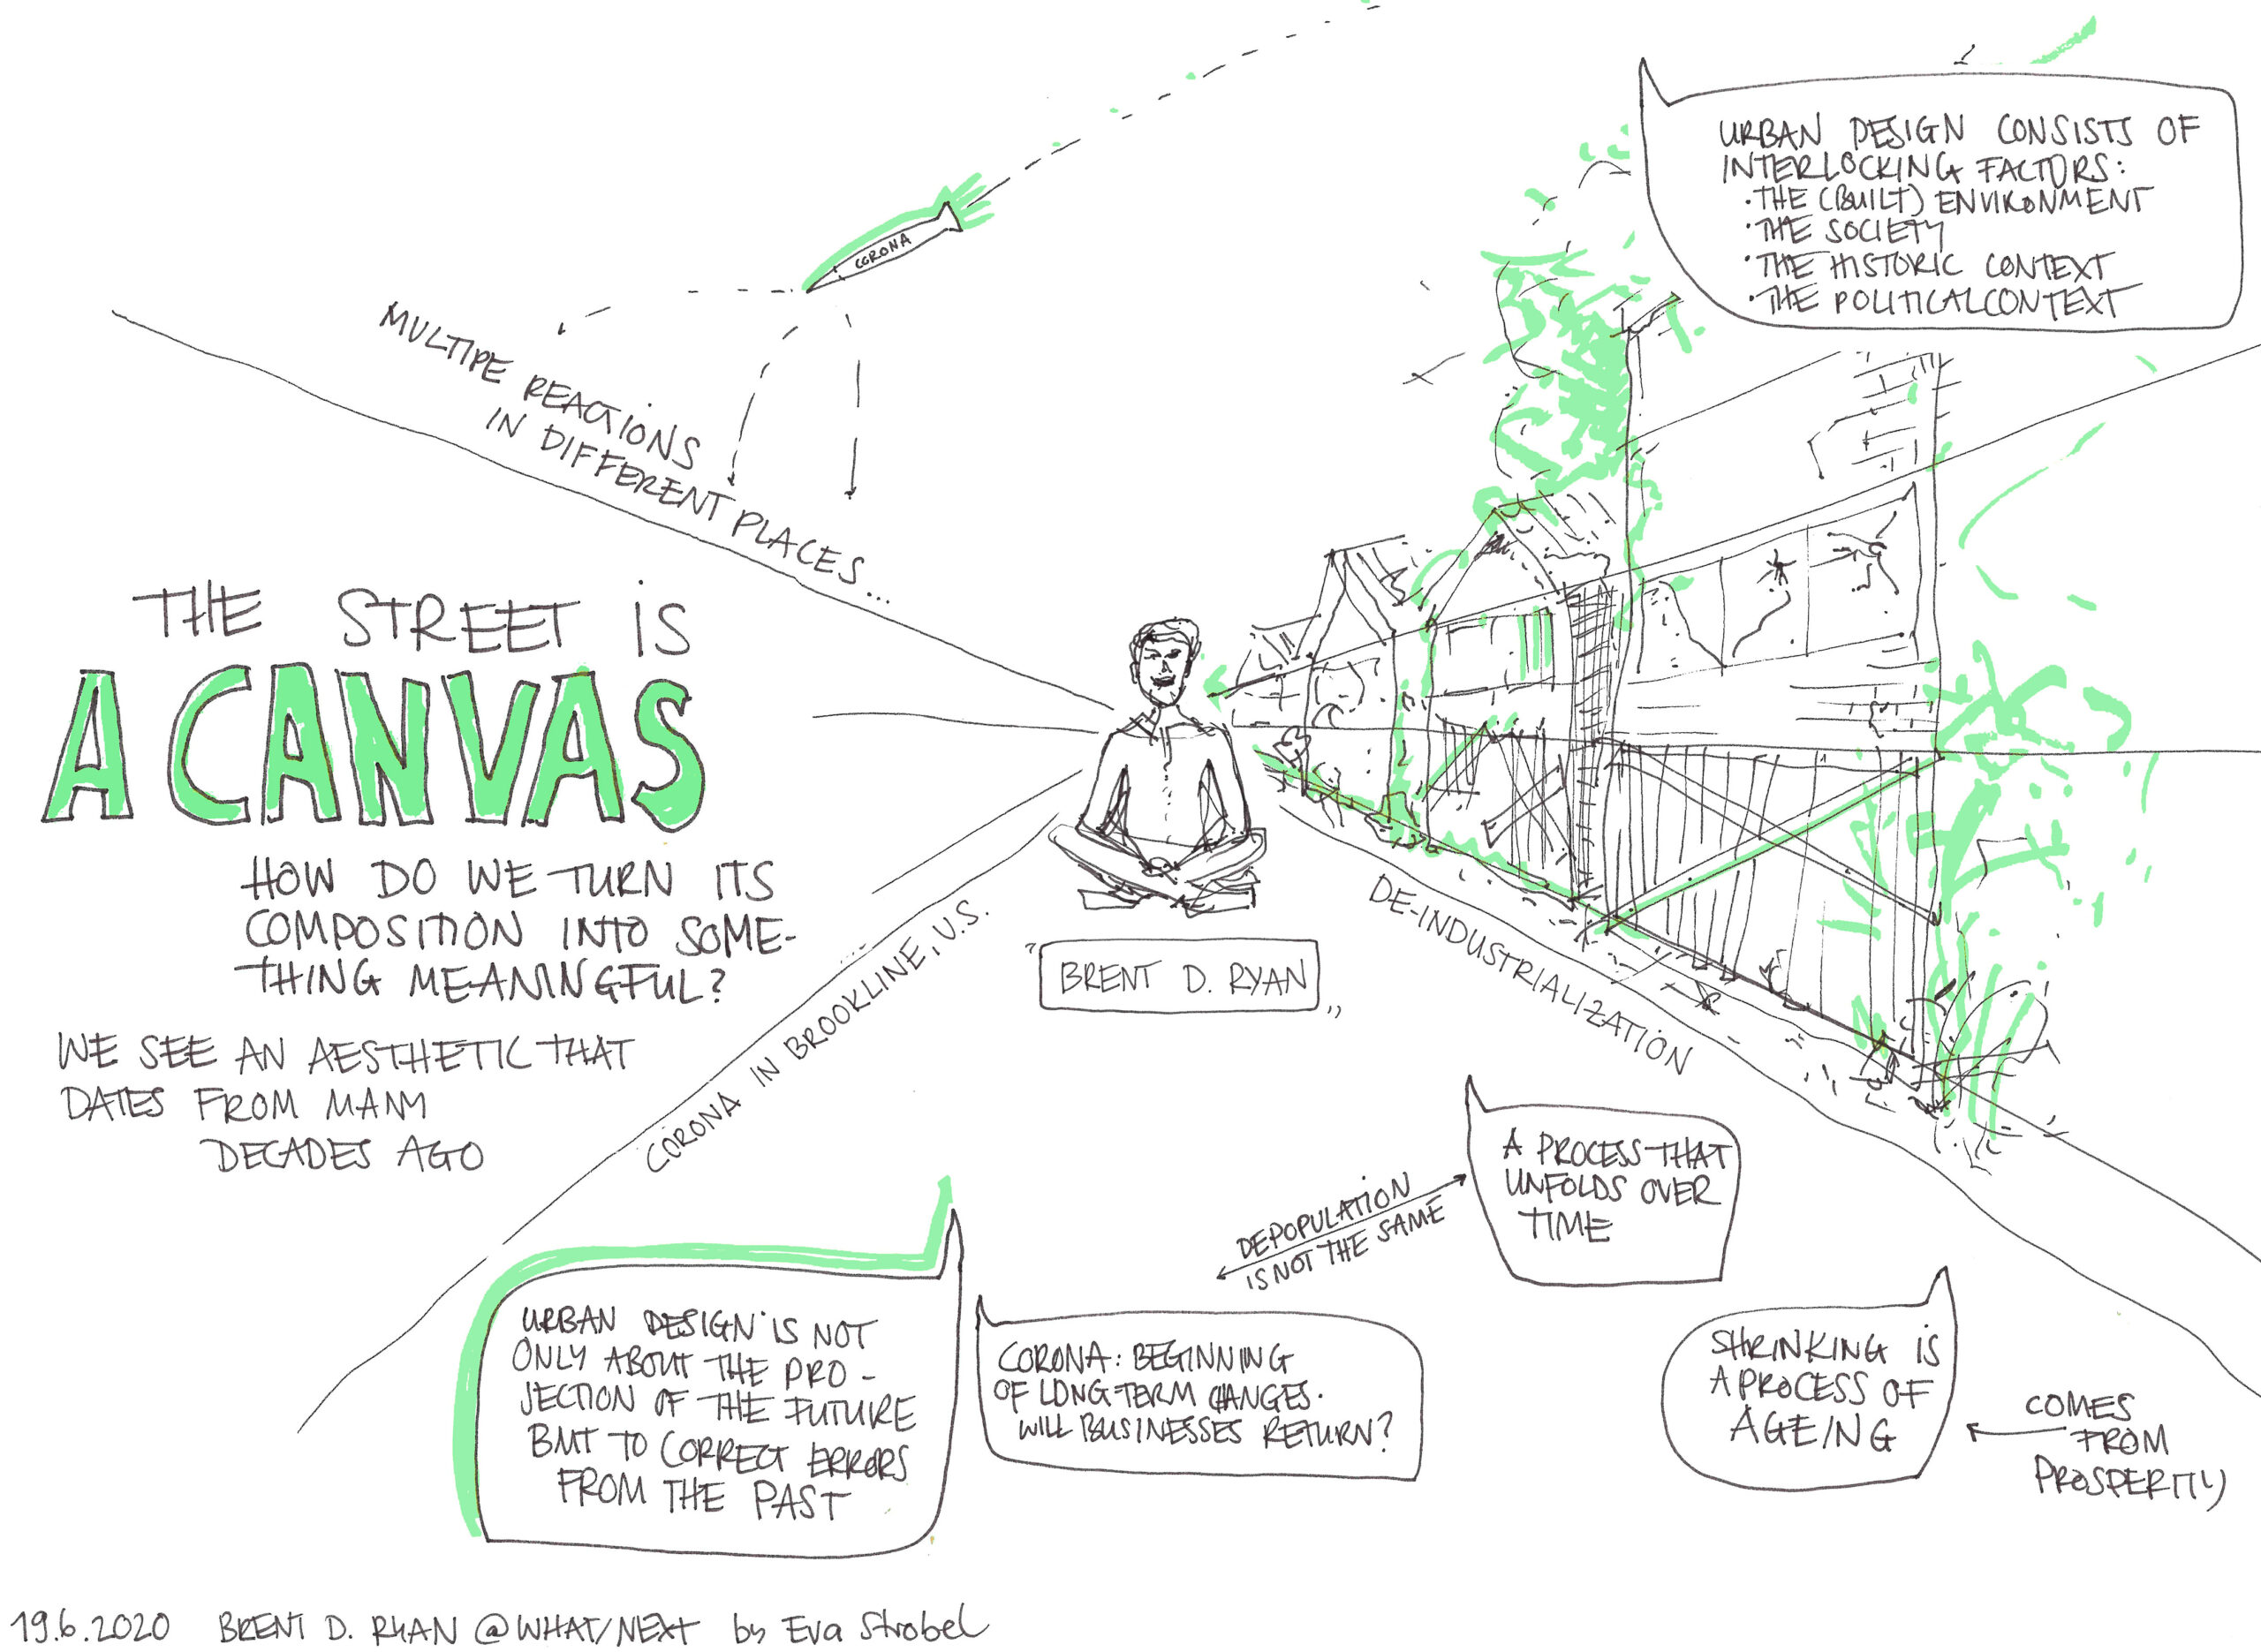 URBAN DESIGN CONSISTS OF
INTERLOCKING FACTORS:
·THE (BUILT) ENVIRONMENT
·THE SOCIETY
·THE HISTORIC CONTEXT
·THE POLITICAL CONTEXT
CORONA
MULTIPE REACTIONS
IN DIFFERENT PLACES...
THE STREET IS
A CANVAS
HOW DO WE TURN ITS
COMPOSITION INTO SOME-
THING MEANINGFUL?
WE SEE AN AESTHETIC THAT
DATES FROM MANY
DECADES AGO
CORONA IN BROOKLINE, U.S.
"BRENT D. RYAN"
DE-INDUSTRIALIZATION
A PROCESS THAT
UNFOLDS OVER
TIME
DEPOPULATION
IS NOT THE SAME
URBAN DESIGN IS NOT
ONLY ABOUT THE PRO-
JECTION OF THE FUTURE
BUT TO CORRECT ERRORS
FROM THE PAST
CORONA: BEGINNING
OF LONG-TERM CHANGES.
WILL BUSINESSES RETURN?
SHRINKING IS
A PROCESS OF
AGEING
COMES
FROM
PROSPERITY
19.6.2020 BRENT D. RYAN @WHAT/NEXT by Eva Strobel